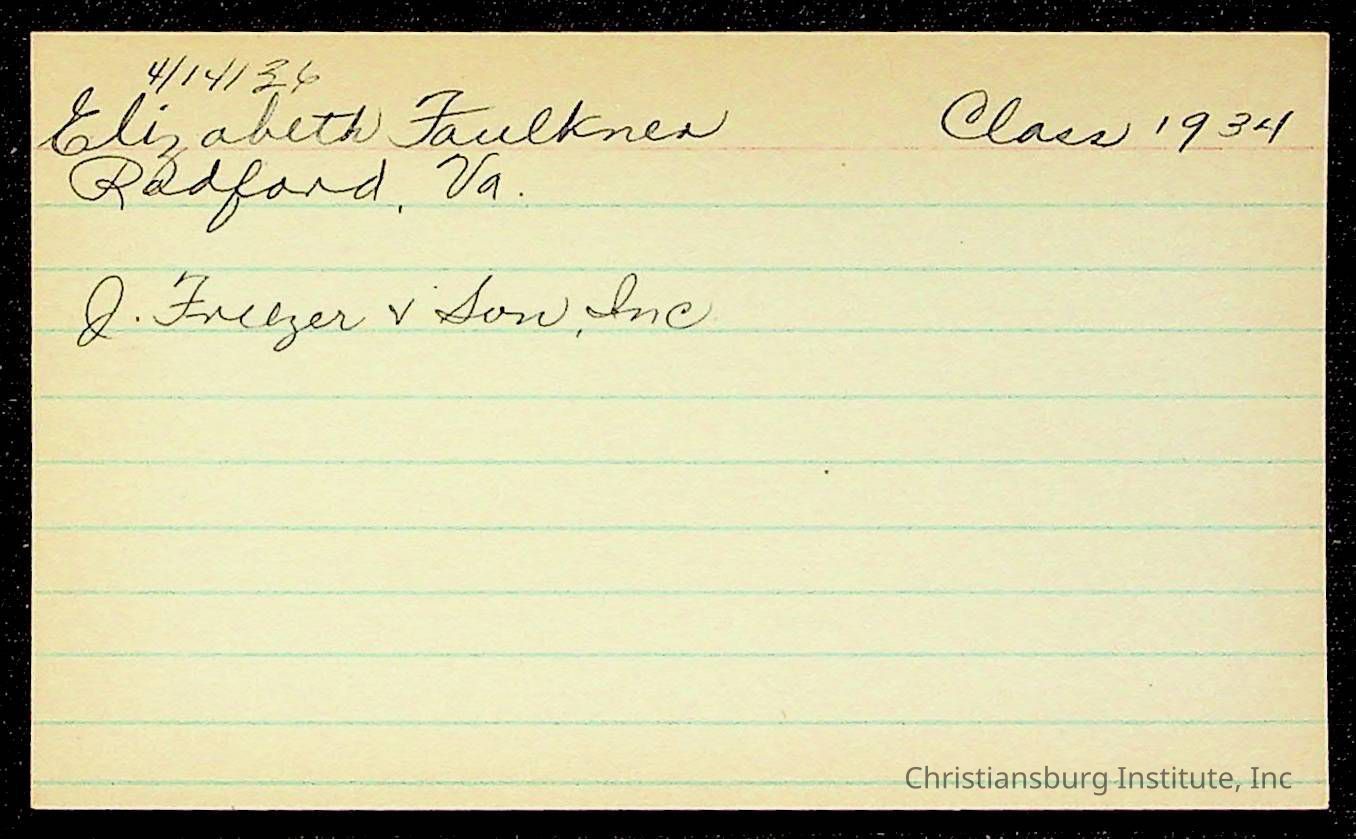 4/14/36
Elizabeth Faulkner Class 1934
Radford, Va.
J. Freezer & Son, Inc
Christiansburg Institute, Inc